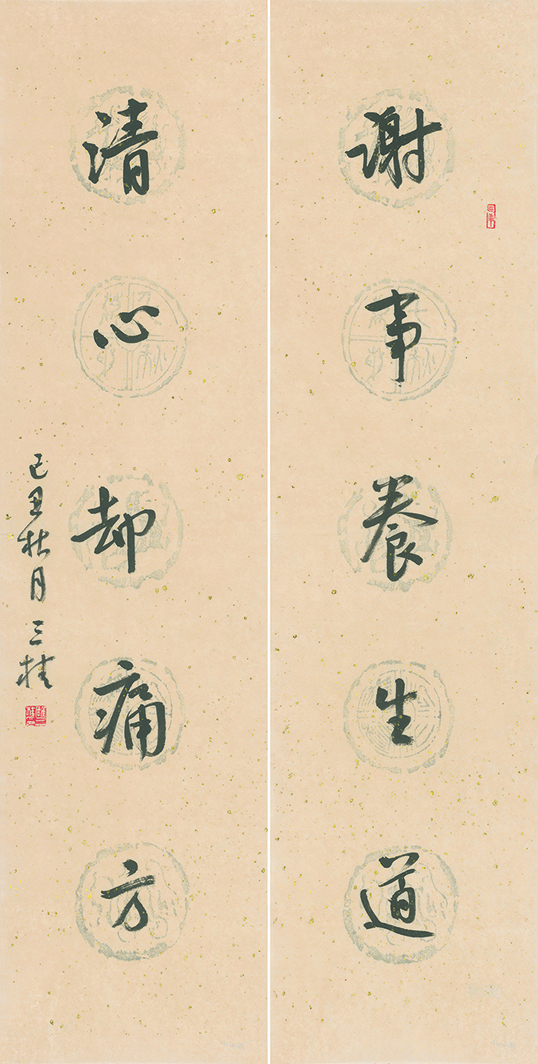 谢事养生道
清心却痛方
己丑秋月三桂